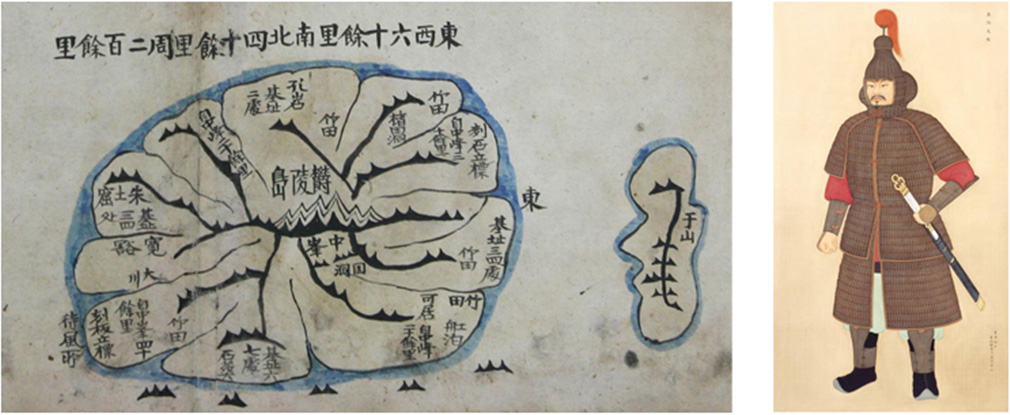 東西六十餘里南北四十餘里周二百餘里
竹田
刻石立標
自中峰三十餘里
楮田洞
竹田
孔岩
基址
二處
自中峰二十餘里
欝陵島
東
于山
朱土窟
寬
豁
大川
中峯
基址三四處
竹田
竹田
可居
自中峰二十餘里
舡泊
基址六
七處
竹田
自中峯四十
餘里
刻板立標
待風所